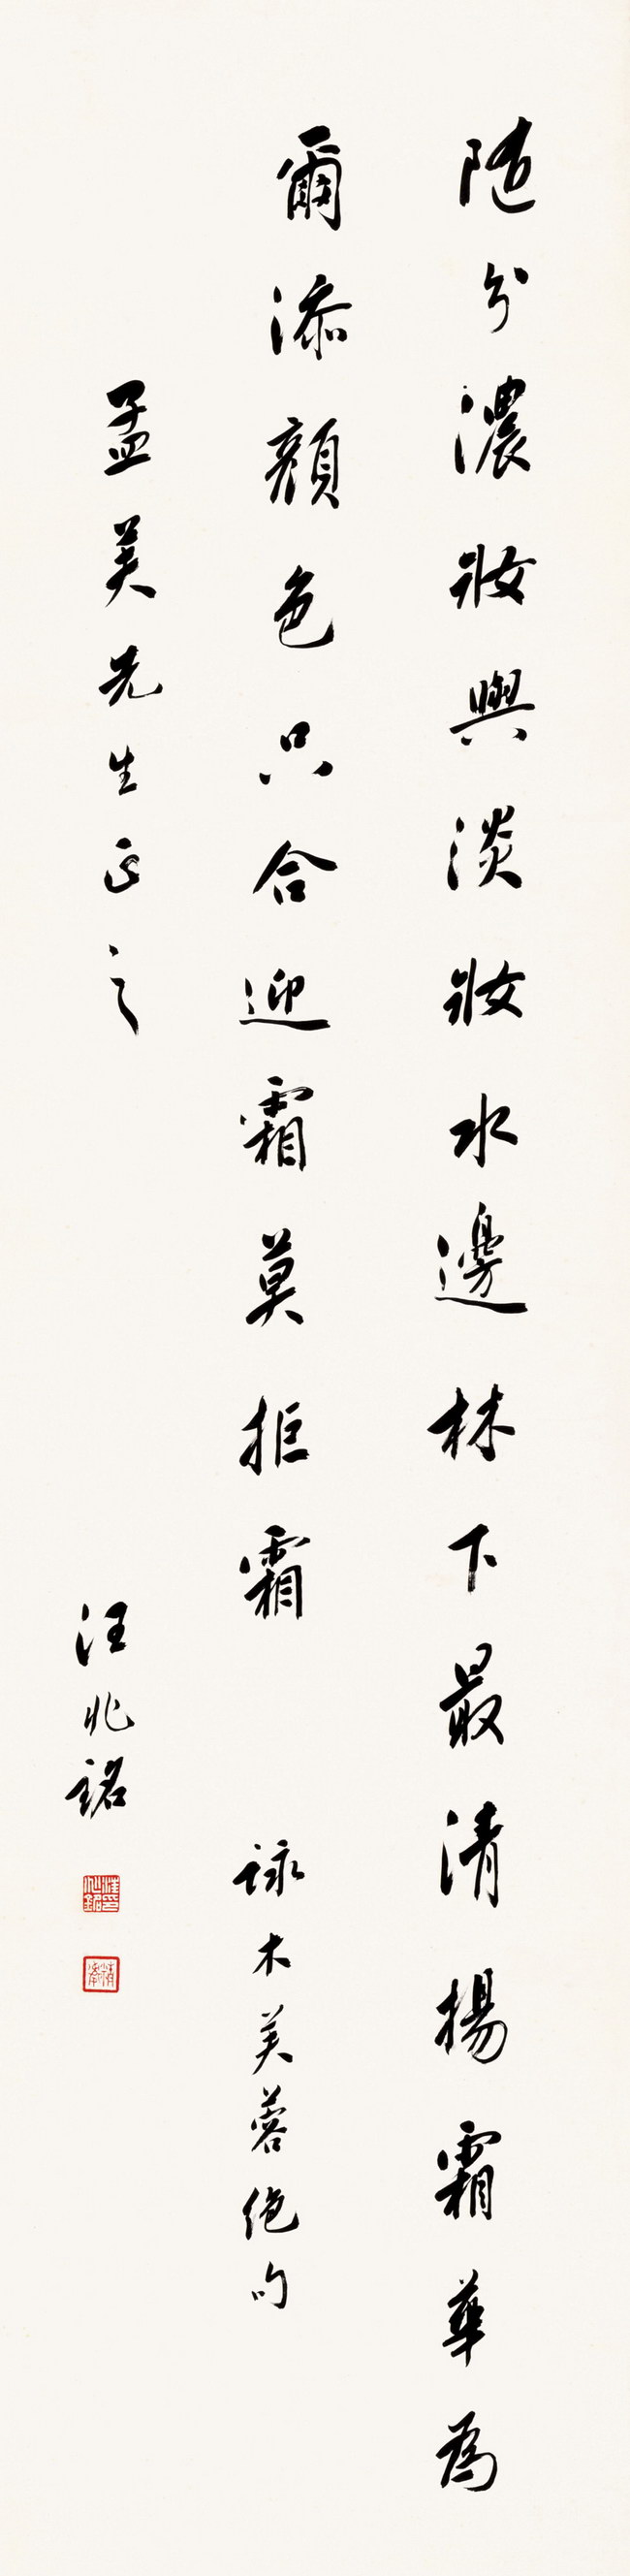 随分濃妝與淡妝水邊林下最清揚霜華為
爾添顏色只合迎霜莫拒霜 詠木芙蓉絕句
孟芙先生正之
汪兆銘
汪兆銘印
精衛